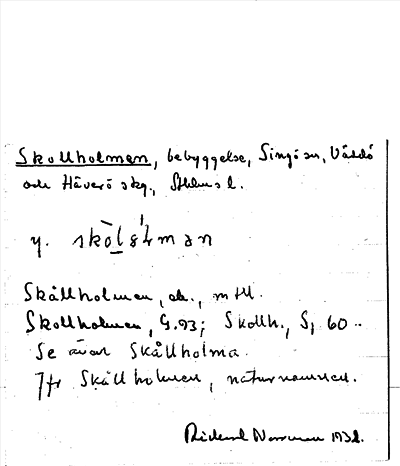 Skollholmen, bebyggelse, Singö sn, Väddö
och Häverö skg., Sthlms l.
y. skòl
Skållholmen, ek., mtl.
Skollholmen, G.93; Skollh., Sj 60
Se även Skållholma.
Jfr Skållholmen, naturnamnen.
Rickard 1932.